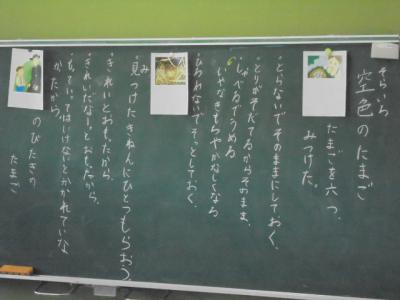 そらいろ
空色のたまご
たまごを六つ、
みつけた。
・とらないでそのままにしておく。
・とりがそだてるからそのまま。
・しゃべるでうめる
いやなきもちやかなしくなる
・ひろわないでそっとしておく。
み
・見つけたきねんにひとつもらおう
・きれいとおもったから。
・きれいだなーとおもったから。
・もっていってはいけないとかかれていな
かったから。
のびたきの
たまご